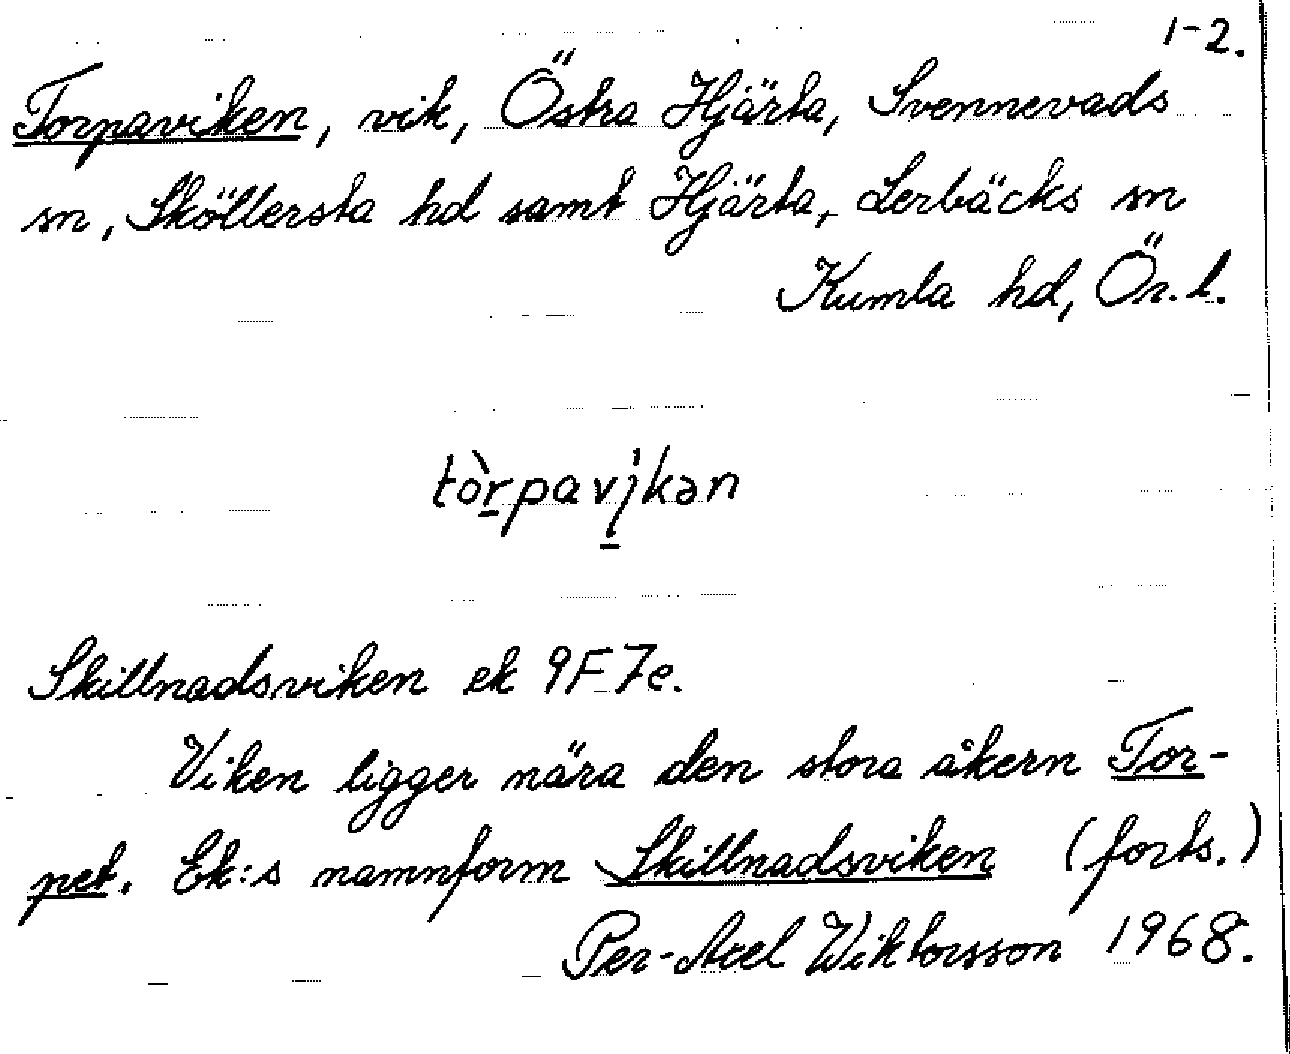 1-2.
Torpaviken, vik, Östra Hjärta, Svennevads
sn, Sköllersta hd samt Hjärta, Lerbäcks sn
Kumla hd, Ör.l.
tòrpavi̗kən
Skillnadsviken ek 9F7e.
Viken ligger nära den stora åkern Tor-
pet. Ek:s namnform Skillnadsviken (forts.)
Per-Axel Wiktorsson 1968.